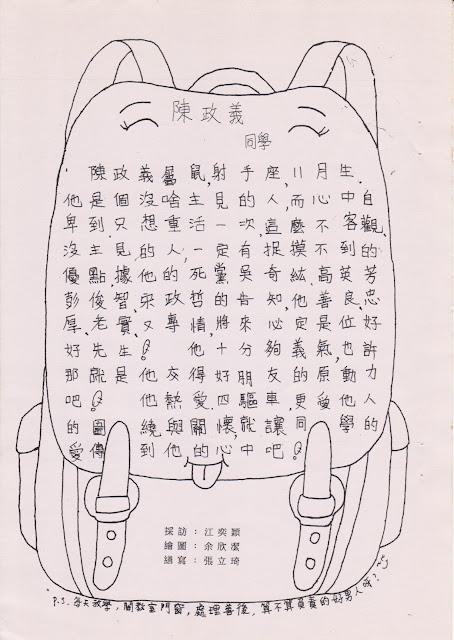 陳政義
同學
陳政義屬鼠,射手座,11月生.
他是個沒啥主見的人,而心中自
卑到只想重活一次,這麼不客觀、
沒主見的人,一定有捉摸不到的
優點,據他的死黨吳奇紘、高英芳、
彭俊智、宋政哲的告知,他善良、忠
厚、老實、又專情,將來必定是位好
好先生。他十分夠義氣,也許
那就是他交得好朋友的原動力
吧。他熱愛四驅車,更愛他人
的圍繞與關懷,就讓同學的
愛傳到他的心中吧。
採訪：江奕穎
繪圖：余欣潔
繕寫：張立琦
P.S.每天放學,關教室門窗,處理善後,算不算負責的好男人呀?